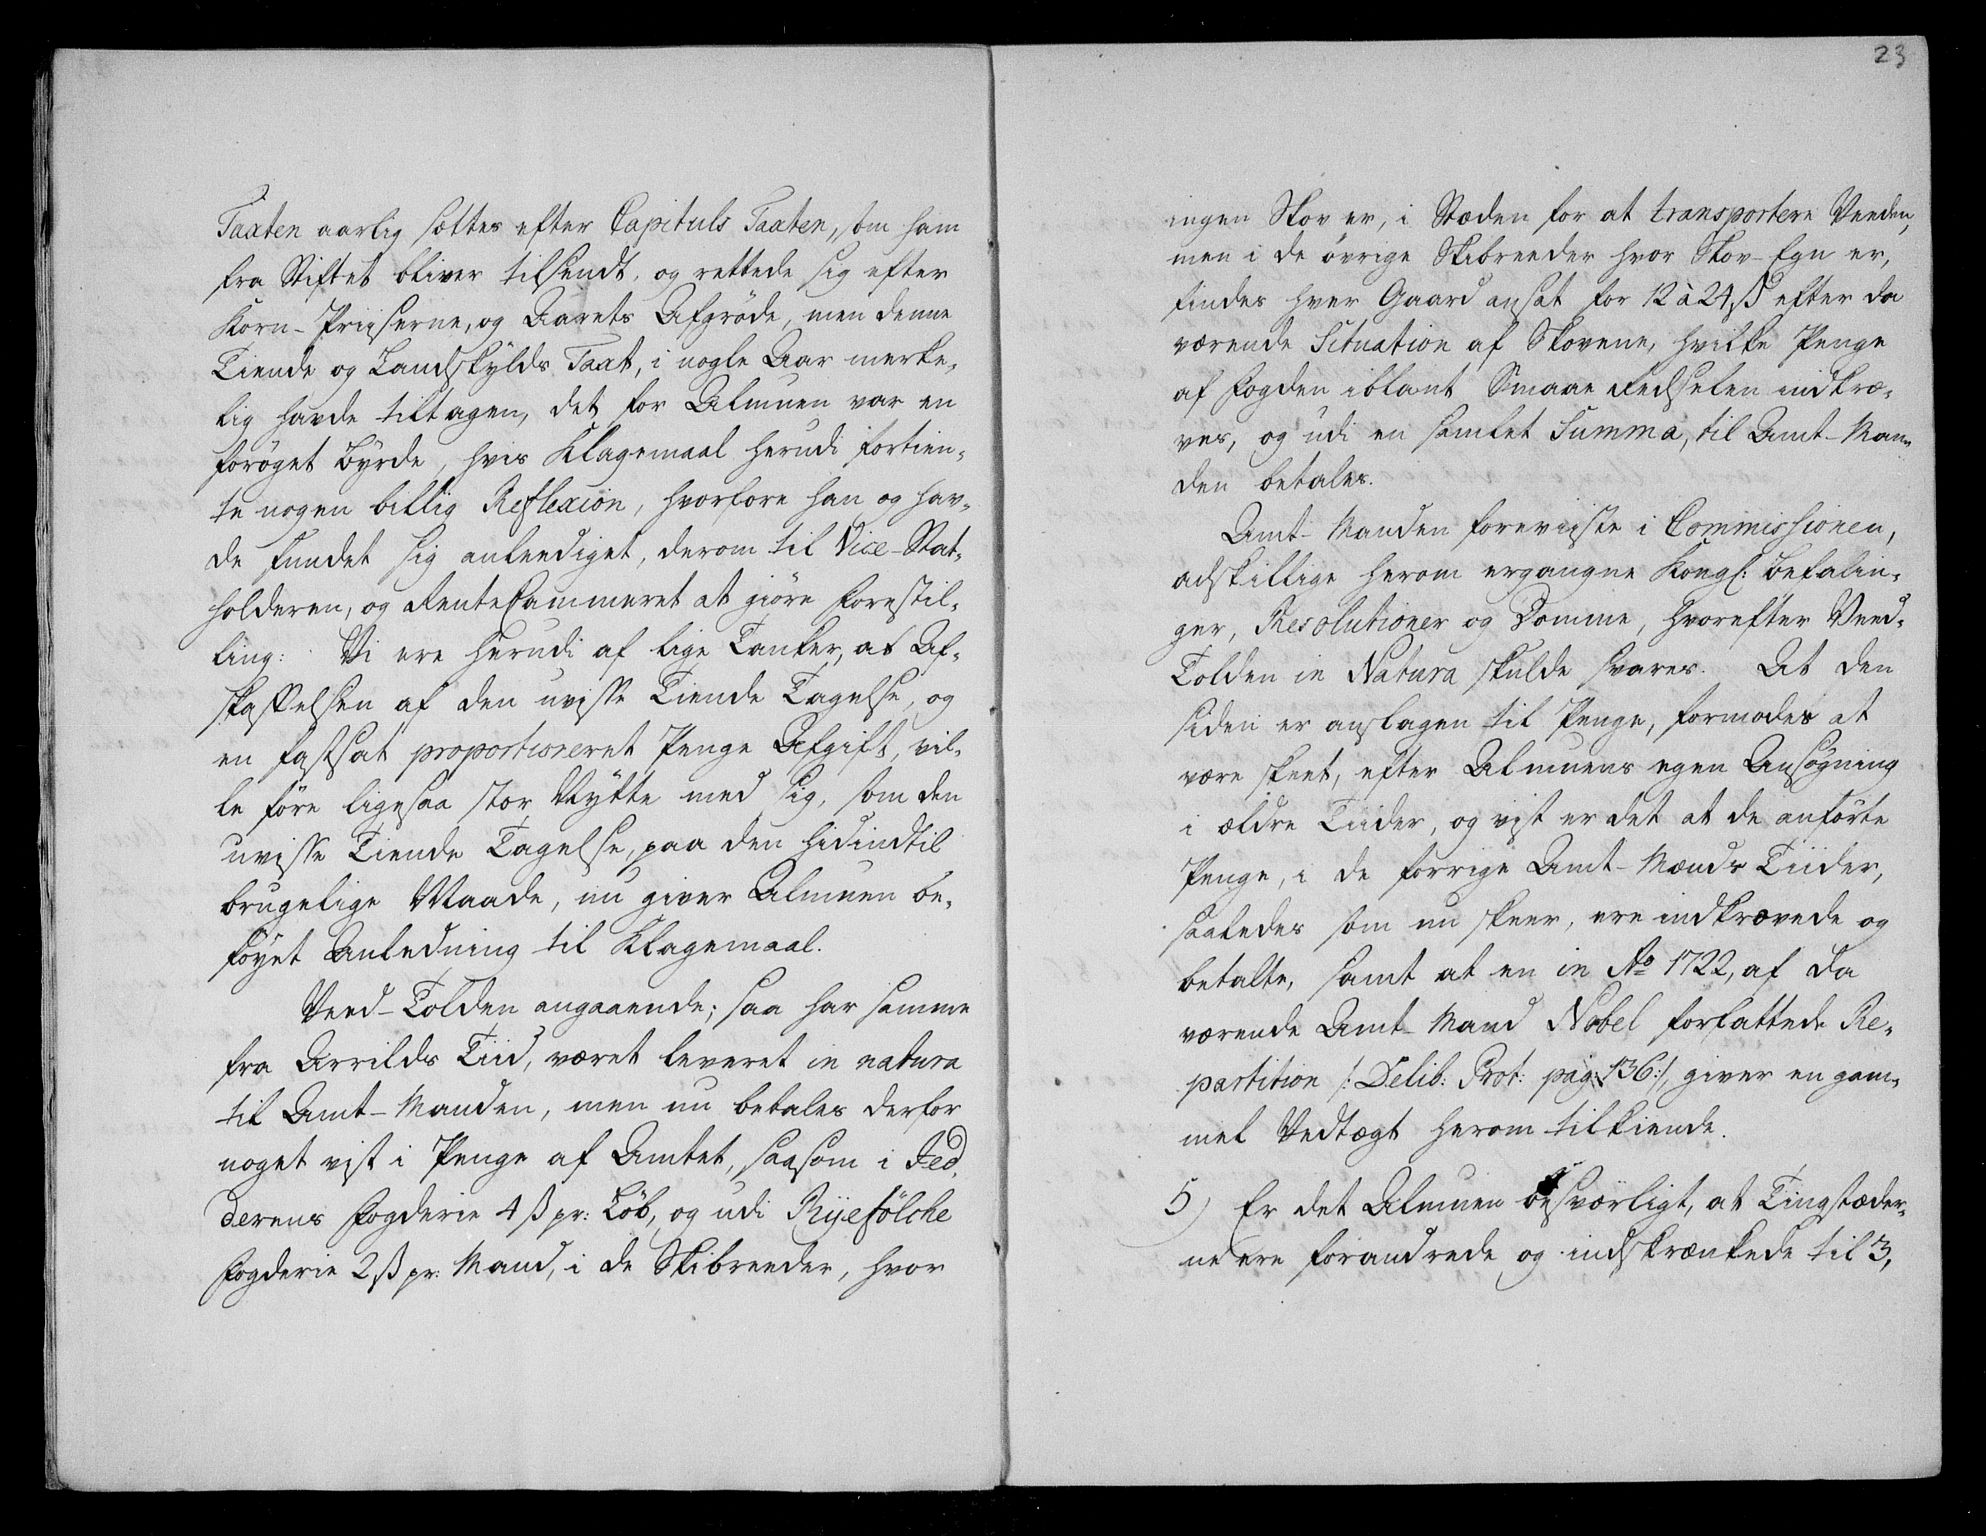 Taxten aarlig sættes efter Capituls Taxten, som ham
fra Stiftet bliver tilsendt, og rettede sig efter
Korn-Priiserne, og Aarets Afgröde, men denne
Tiende og Landskylds Taxt, i nogle Aar merke-
lig havde tiltagen, det for Almuen var en
forøget Byrde, hvis Klagemaal herudi fortien-
te nogen billig Reflexion, hvorfore han og hav-
de fundet sig anleediget, derom til Vice-Stat-
holderen, og RenteCammeret at giöre Forestil-
ling: Vi ere herudi af lige Tanker, at Af-
skaffelsen af den uvisse Tiende Tagelse, og
en fastsat proportioneret Penge Afgift, vil-
le före ligesaa stor Nytte med sig, som den
uvisse Tiende Tagelse, paa den hidindtil
brugelige Maade, nu giver Almuen be-
föyet Anledning til Klagemaal.
Veed-Tolden angaaende; saa har samme
fra Arrilds Tiid, været leveret in natura
til Amt-Manden, men nu betales derfor
noget vist i Penge af Amtet, saasom i Jed-
derens Fogderie 4 ß pr: Löb, og udi Ryefölche
Fogderie 2 ß pr: Mand, i de Skibreeder, hvor
23
ingen Skov er, i Stæden for at transportere Veeden,
men i de övrige Skibreeder hvor Skov-Egn er,
findes hver Gaard ansat for 12 à 24 ß efter da
værende Situation af Skovene, hvilke Penge
af Fogden iblant Smaae Redselen indkræ-
ves, og udi en samlet Summa, til Amt-Man-
den betales.
Amt-Manden foreviiste i Commissionen,
adskillige herom ergangne Kongl: Befalin-
ger, Resolutioner og Domme, hvorefter Veed-
Tolden in Natura skulde svares. At den
siden er anslagen til Penge, formodes at
være skeet, efter Almuens egen Ansögning
i ældre Tiider, og vist er det at de anförte
Penge, i de forrige Amt-Mænds Tiider,
saaledes som nu skeer, ere indkrævede og
betalte, samt at en in Ao 1722, af da
værende Amt-Mand Nobel forfattede Re-
partition /: Delib: Prot: pag: 136 :/, giver en gam-
mel Vedtægt herom tilkiende.
5) Er det Almuen besværligt, at Tingstæder-
ne ere forandrede og indskrænkede til 3,